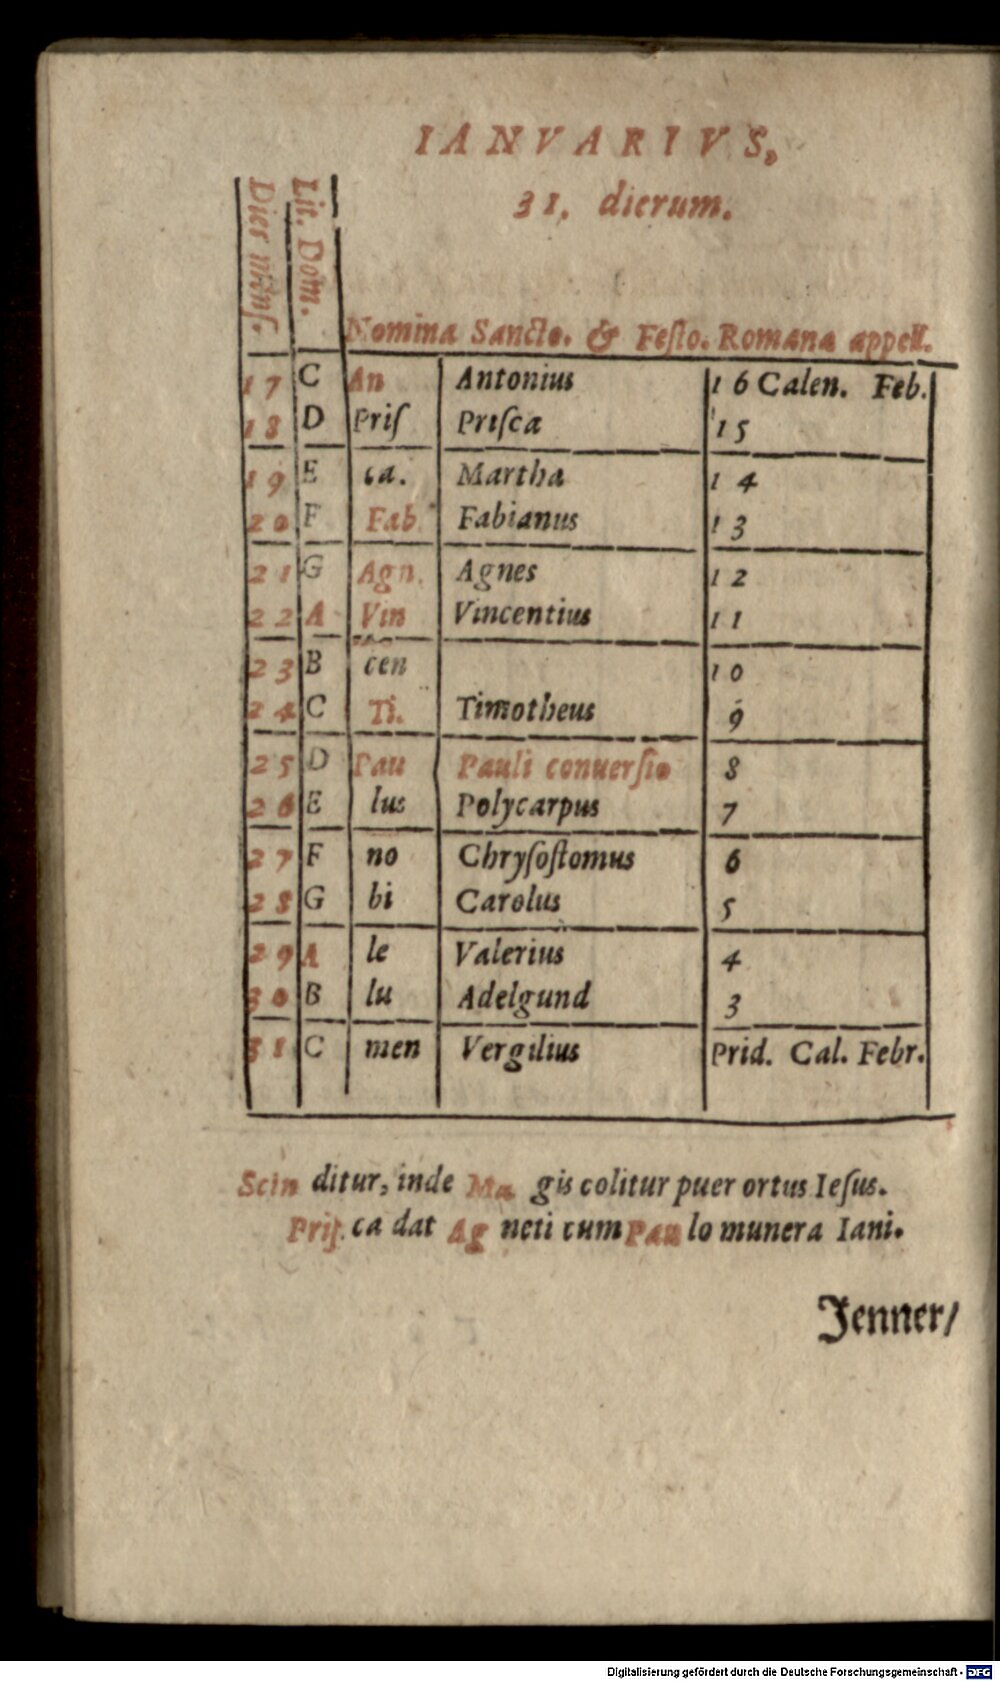 IANVARIVS,
31. dierum.
Dies mẽns.
Lit. Dom.
Nomina Sancto. & Feſto. Romana appell.
17 C An Antonius 16 Calen. Feb.
18 D Priſ Priſca 15
19 E ca. Martha 14
20 F Fab. Fabianus 13
21 G Agn. Agnes 12
22 A Vin Vincentius 11
23 B cen 10
24 C Ti. Timotheus 9
25 D Pau Pauli conuerſio 8
26 E lus Polycarpus 7
27 F no Chryſoſtomus 6
28 G bi Carolus 5
29 A le Valerius 4
30 B lu Adelgund 3
31 C men Vergilius Prid. Cal. Febr.
Scin ditur, inde Ma gis colitur puer ortus Ieſus.
Priſ. ca dat Ag neti cum Pau lo munera Iani.
Jenner/
Digitalisierung gefördert durch die Deutsche Forschungsgemeinschaft - DFG